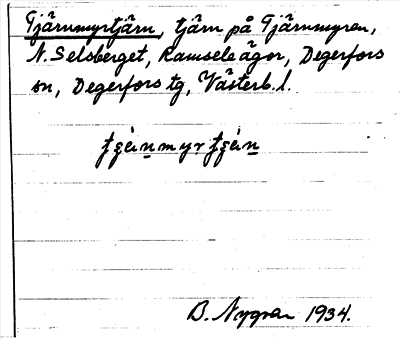 Tjärnmyrtjärn, tjärn på Tjärnmyran,
N. Selsberget, Ramsele ägor, Degerfors
sn, Degerfors tg, Västerb. l.
B. Nygren 1934.